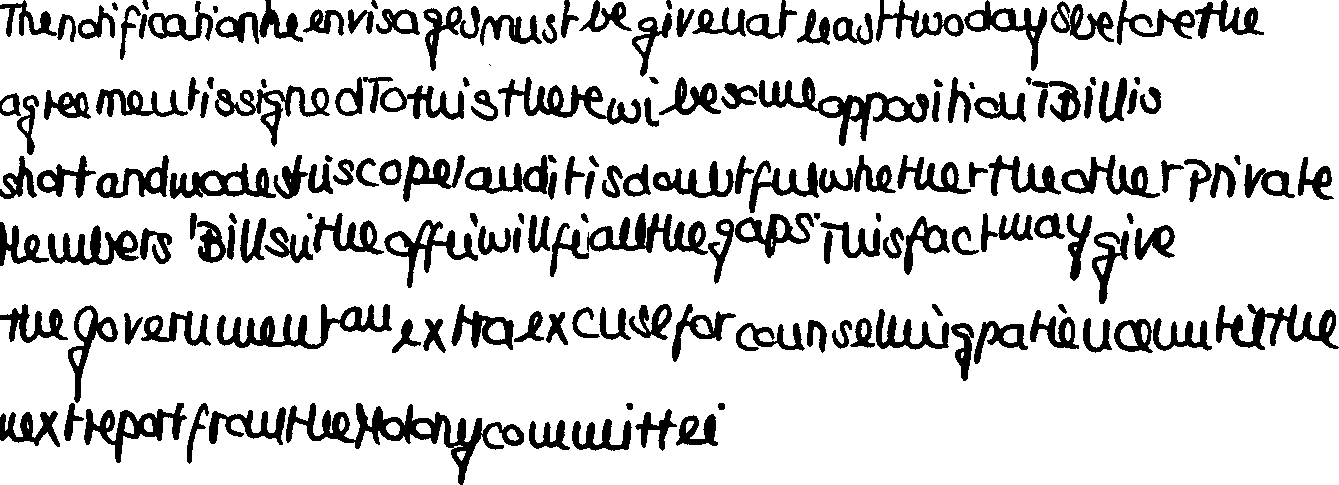 The notification he envisages must be given at least two days before the
agreement is signed To this there wi be some opposition Bill is
short and modest in scope, and it is doubtful whether the other Private
Members' Bills in the offi will fi all the gaps This fact may give
the government an extra excuse for counselling patience until the
next report from the Molony committee